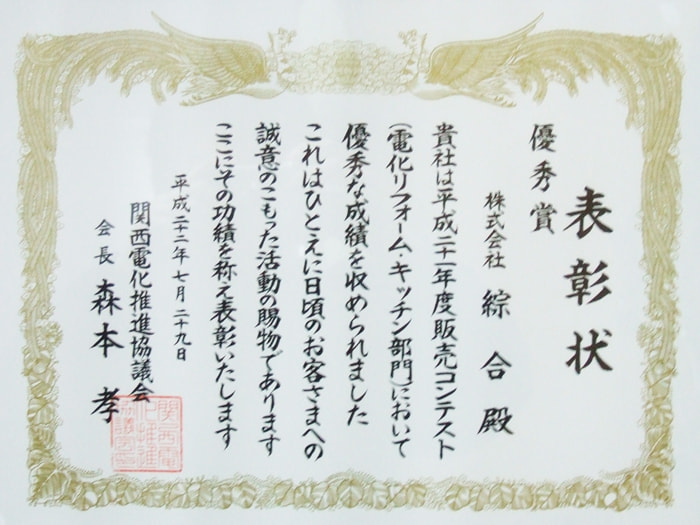 表彰状
優秀賞
株式会社 綜合殿
貴社は平成二十一年度販売コンテスト
(電化リフォーム・キッチン部門)において
優秀な成績を収められました
これはひとえに日頃のお客さまへの
誠意のこもった活動の賜物であります
ここにその功績を称え表彰いたします
平成二十二年七月二十九日
関西電化推進協議会
会長 森本孝
関西電
化推進
協議会